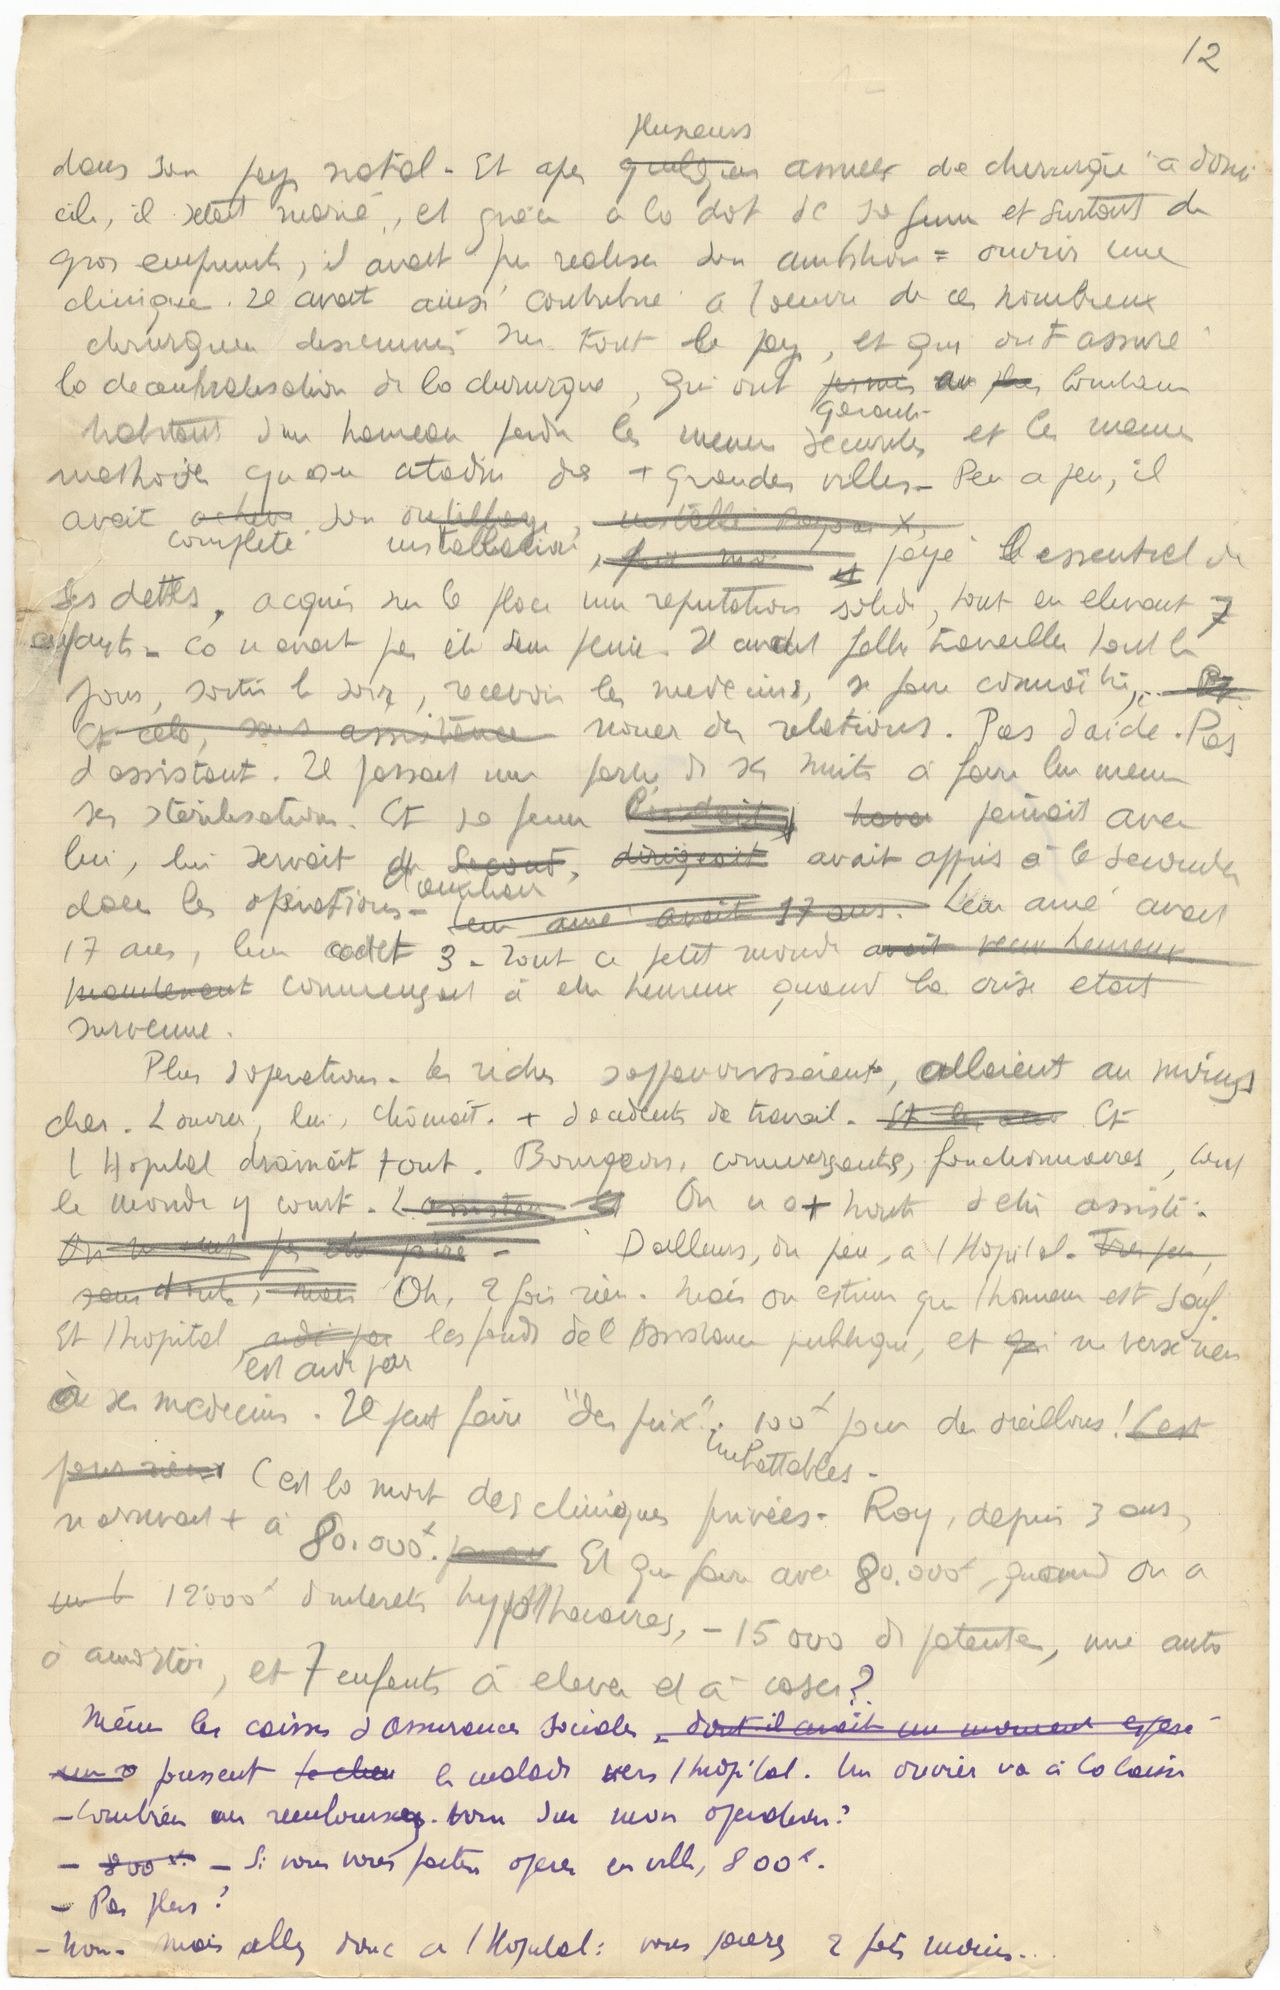 12
plusieurs
dans son pays natal. Et après quelques années de chirurgie à domi
cile, il s'était marié, et grâce à la dot de sa femme et surtout de
gros emprunts, il avait pu réaliser son ambition = ouvrir une
clinique. Il avait ainsi contribué à l'oeuvre de ces nombreux
chirurgiens disséminés sur tout le pays, et qui ont assuré
la décentralisation de la chirurgie, qui ont permis au
garanti
habitant d'un hameau perdu les mêmes sécurités et les mêmes
méthodes qu'au citadin des + grandes villes. Peu à peu, il
avait achevé son outillage, installé Rayons X,
complété installation, payé l'essentiel de
ses dettes, acquis sur la place une réputation solide, tout en élevant 7
enfants. Ca n'avait pas été sans peine. Il avait fallu travailler tout le
jour, sortir le soir, recevoir les médecins, se faire connaître,
Et cela, sans assistance nouer des relations. Pas d'aide. Pas
d'assistant. Il passait une partie de ses nuits à faire lui même
ses stérilisations. Et sa femme peinait avec
lui, lui servait de second, dirigeait avait appris à le seconder
dans les opérations. Leur aîné avait 17 ans. Leur aîné avait
17 ans, leur cadet 3. Tout ce petit monde avait vécu heureux
maintenant commençait à être heureux quand la crise était
survenue.
Plus d'opérations. Les riches s'appauvrissaient, allaient au moins
cher. L'ouvrier, lui, chômait. + d'accidents de travail. Et
l'Hôpital drainait tout. Bourgeois, commerçants, fonctionnaires, tout
le monde y court. On n'a + honte d'être assisté.
D'ailleurs, on paie, à l'Hôpital. Très peu,
sans doute, mais Oh, 2 fois rien. Mais on estime que l'honneur est sauf.
Et l'hôpital aidé par les fonds de l'Assistance publique, et qui ne verse rien
est aidé par
à ses médecins. Il peut faire "des prix" 100f pour des oreillons! C'est
imbattables.
pour rien C'est la mort des cliniques privées. Roy, depuis 3 ans,
n'arrivait + à 80.000f. Et que faire avec 80.000f, quand on a
12000f d'intérêts hypothécaires, - 15000 de patentes, une auto
à amortir, et 7 enfants à élever et à caser?
Même les caisses d'Assurances Sociales, dont il avait un moment espéré
poussent le malade vers l'hôpital. Un ouvrier va à la caisse
- Combien me remboursez-vous sur mon opération?
- 800f. - Si vous vous faites opérer en ville, 800f.
- Pas plus?
- Non. Mais allez donc à l'Hôpital: vous paierez 2 fois moins...